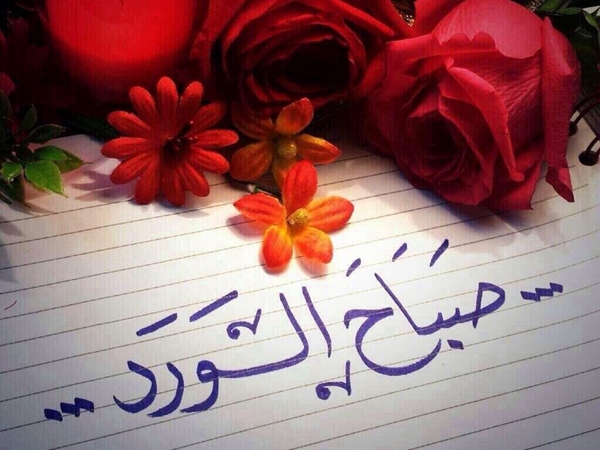 ... صَبَاحَ الْوَرَدَ ...